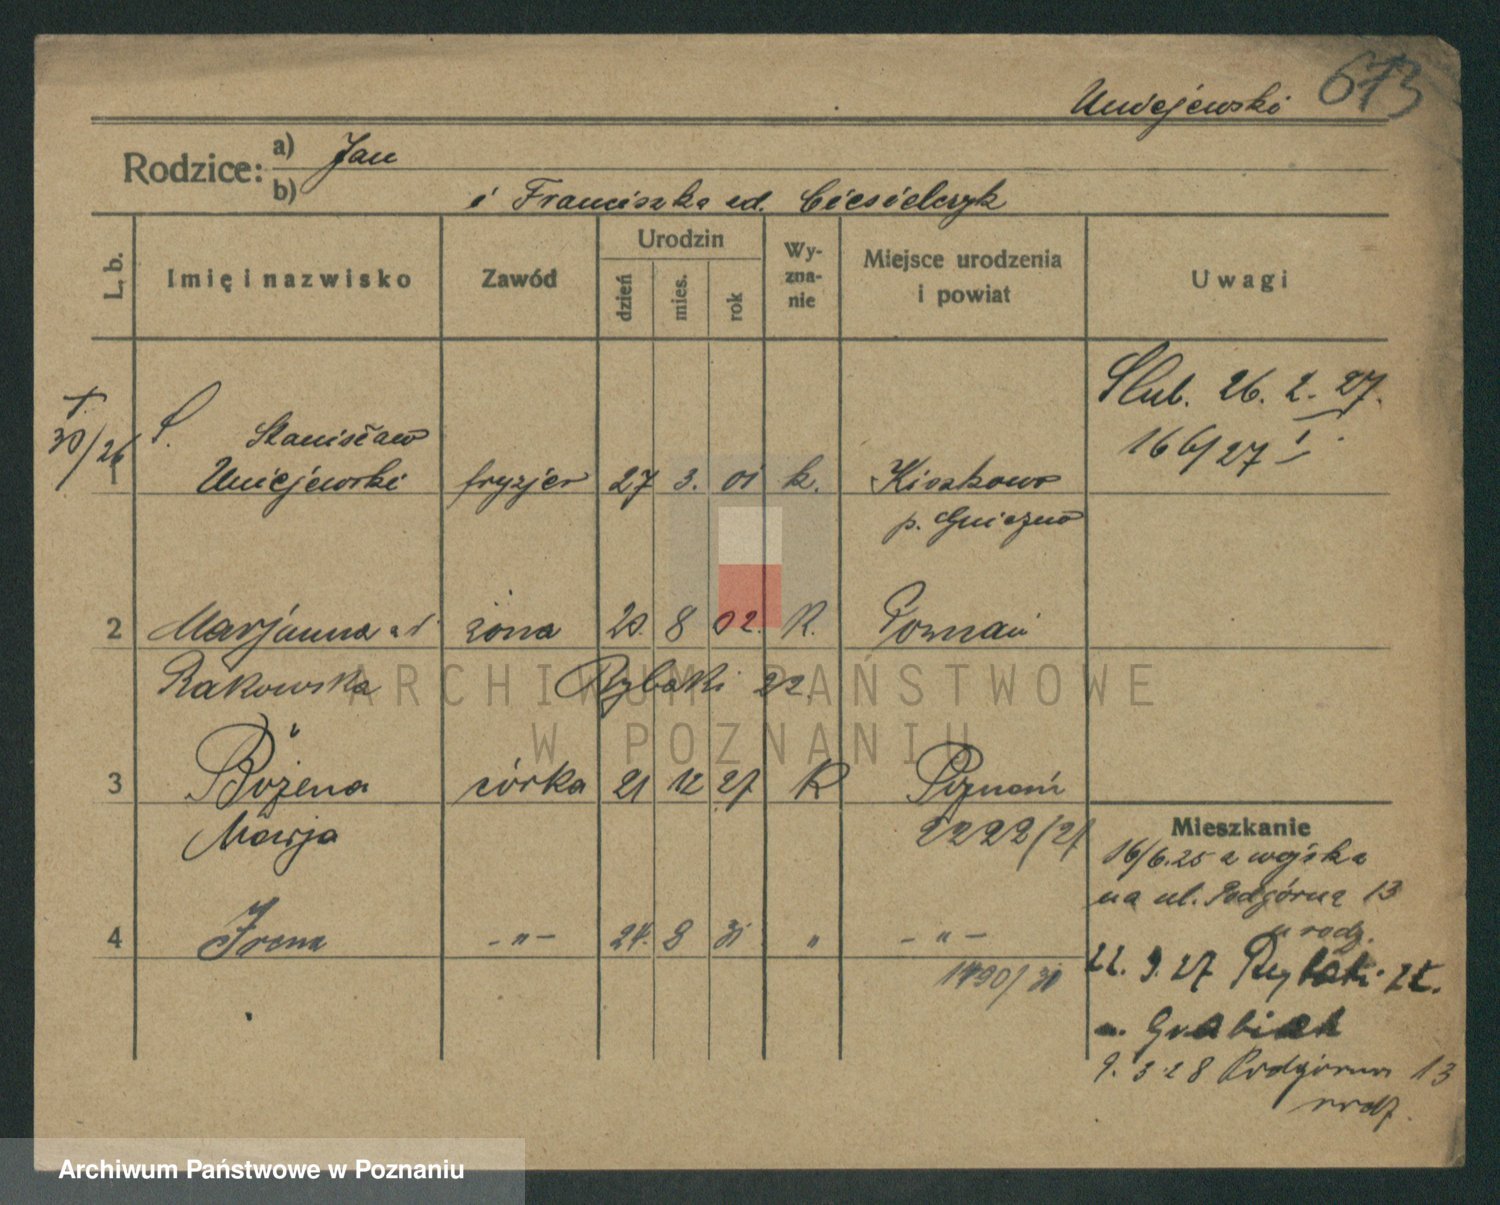 613
Uniejewski
Rodzice: a) Jan
b) i Franciszka zd. Ciesielczyk
L. b. Imię i nazwisko Zawód Urodzin dzień mies. rok Wyzna-nie Miejsce urodzenia i powiat Uwagi
Ślub. 26. 2. 27.
166/27 I
30/26
1 S. Stanisław
Uniejewski fryzjer 27 3. 01 k. Kiszkowo
p. Gniezno
2 Marjanna zd. żona 20. 8 02. K. Poznań
Rakowska Rybaki 22.
3 Bożena córka 21 12 27 K Poznań
Marja 2222/27
Mieszkanie
16/6.25 z wojska
na ul. Podgórną 13
u rodz.
4 Irena - " - 24. 8 31 " - " -
1490/31
22. 9. 27 Rybaki 22.
u. Grabiak
9. 3 28 Podgórna 13
rodz.
ARCHIWUM PAŃSTWOWE
W POZNANIU
Archiwum Państwowe w Poznaniu